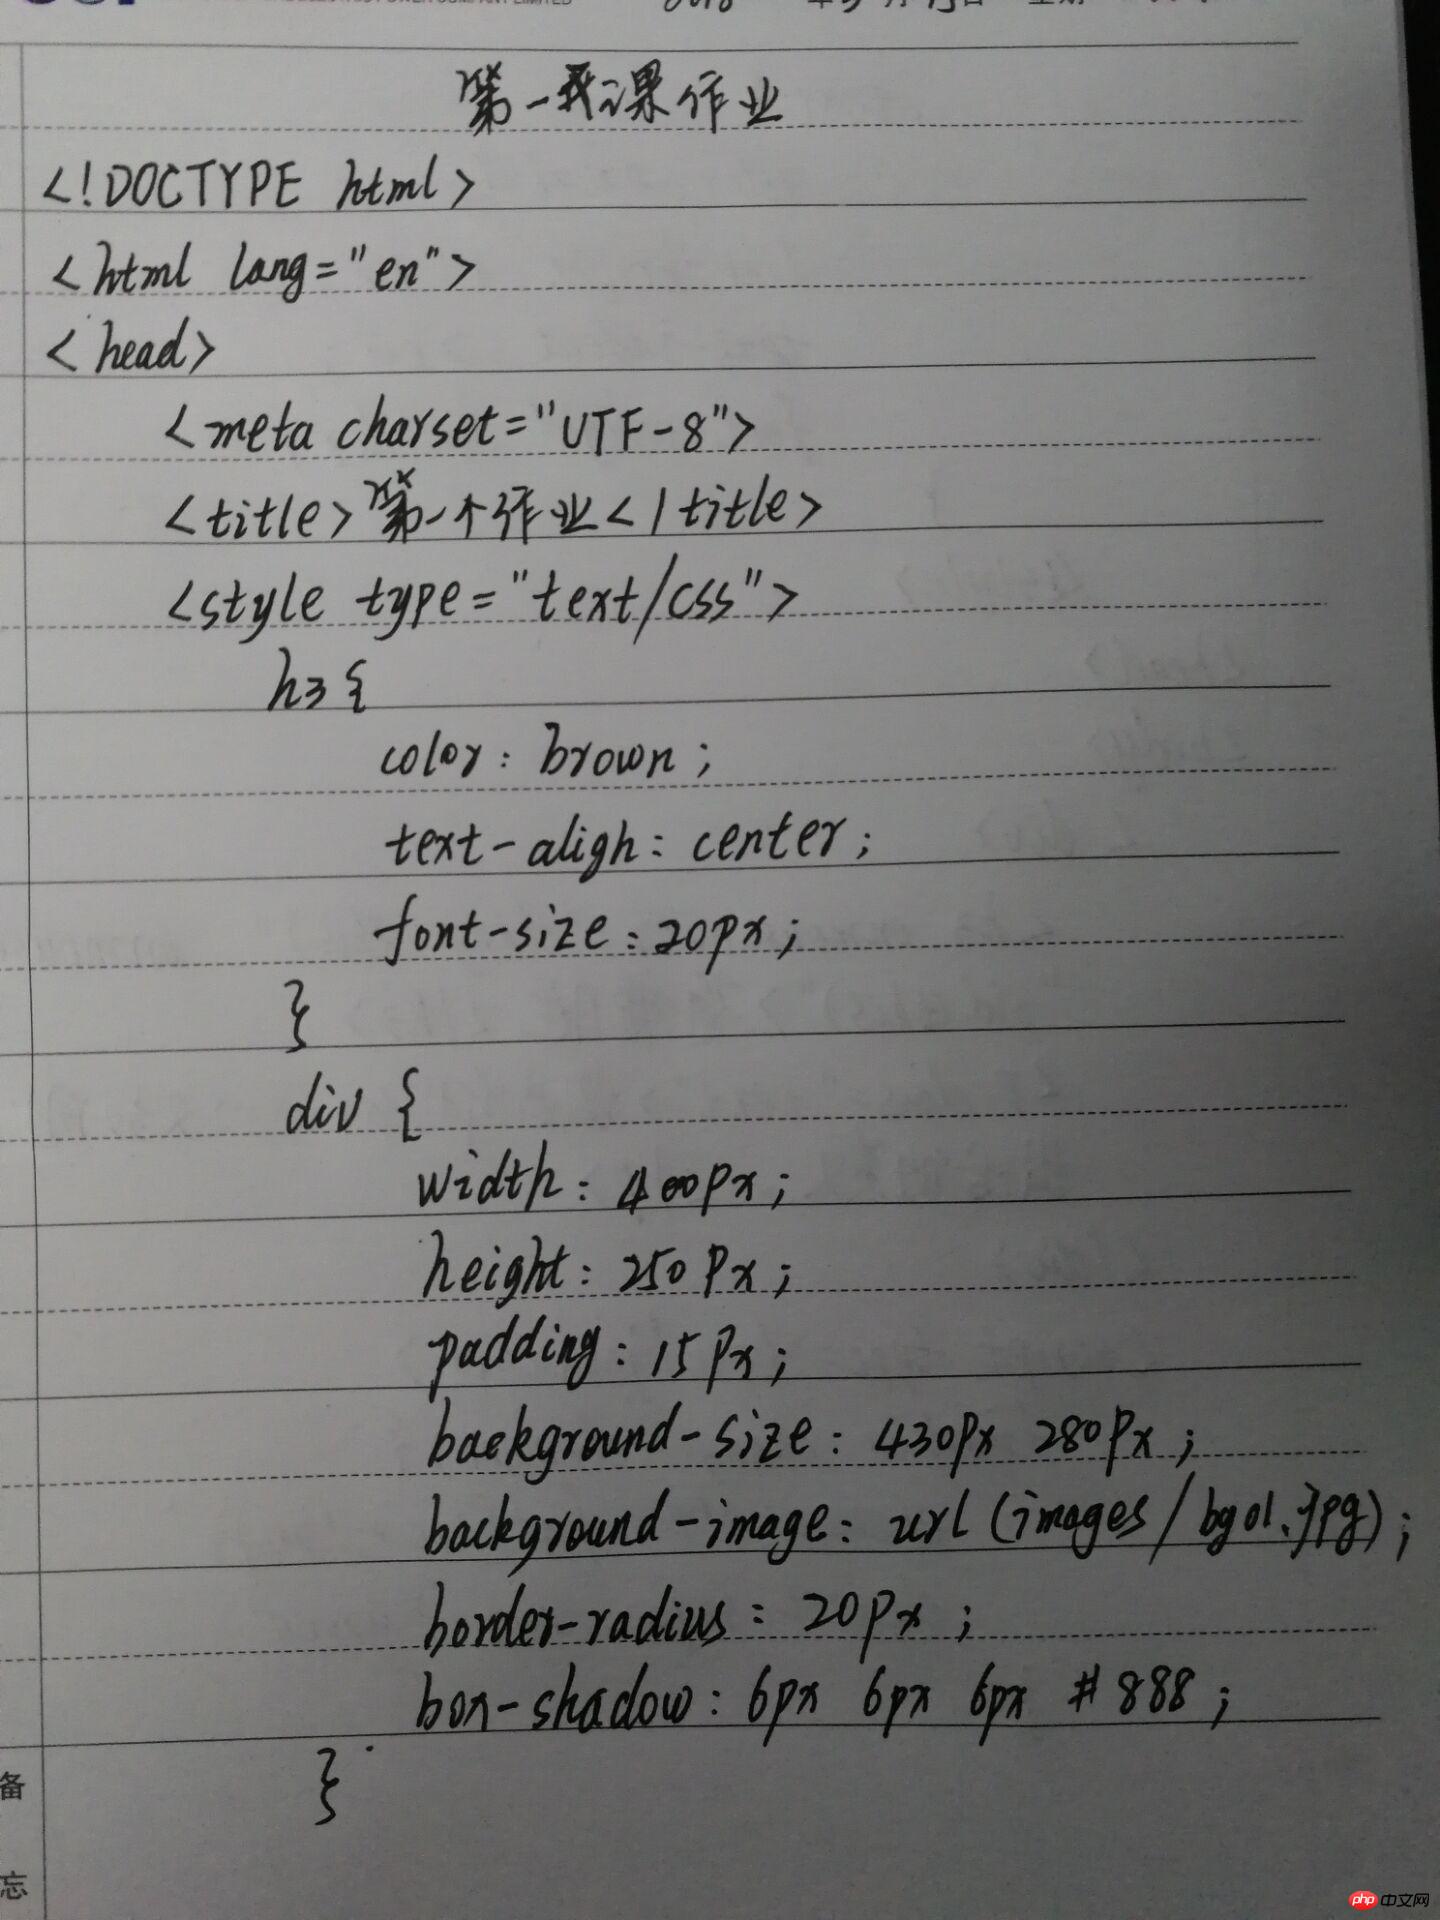 2018 年5月15日 星期
第一我课作业
<!DOCTYPE html>
<html lang="en">
<head>
<meta charset="UTF-8">
<title>第一个作业</title>
<style type="text/css">
h3 {
color: brown;
text-aligh: center;
font-size: 20px;
}
div {
width: 400px;
height: 250px;
padding: 15px;
background-size: 430px 280px;
background-image: url(images/bg01.jpg);
border-radius: 20px;
box-shadow: 6px 6px 6px #888;
}
备
忘
php中文网